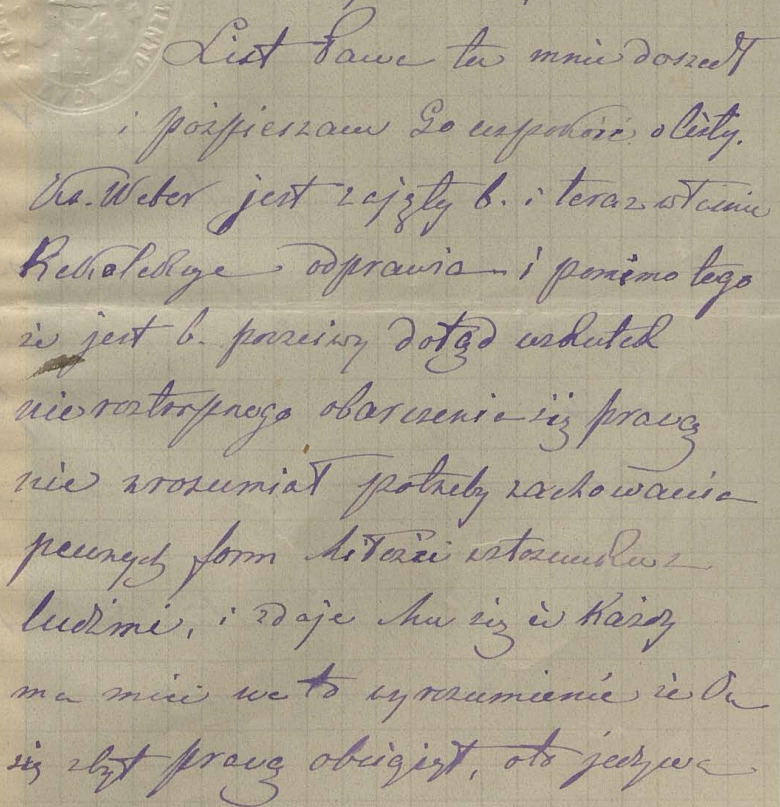 List Pana tu mnie doszedł
i pośpieszam Go uspokoić o listy.
Ks. Weber jest zajęty b. i teraz właśnie
Rekolekcye odprawia i pomimo tego
że jest b. poczciwy dotąd wskutek
nieroztropnego obarczenia się pracą
nie zrozumiał potrzeby zachowania
pewnych form Miłości w stosunku z
ludźmi, i zdaje Mu się że Każdy
ma mieć we to wyrozumienie że On
się zbyt pracą obciążył, oto jedyna